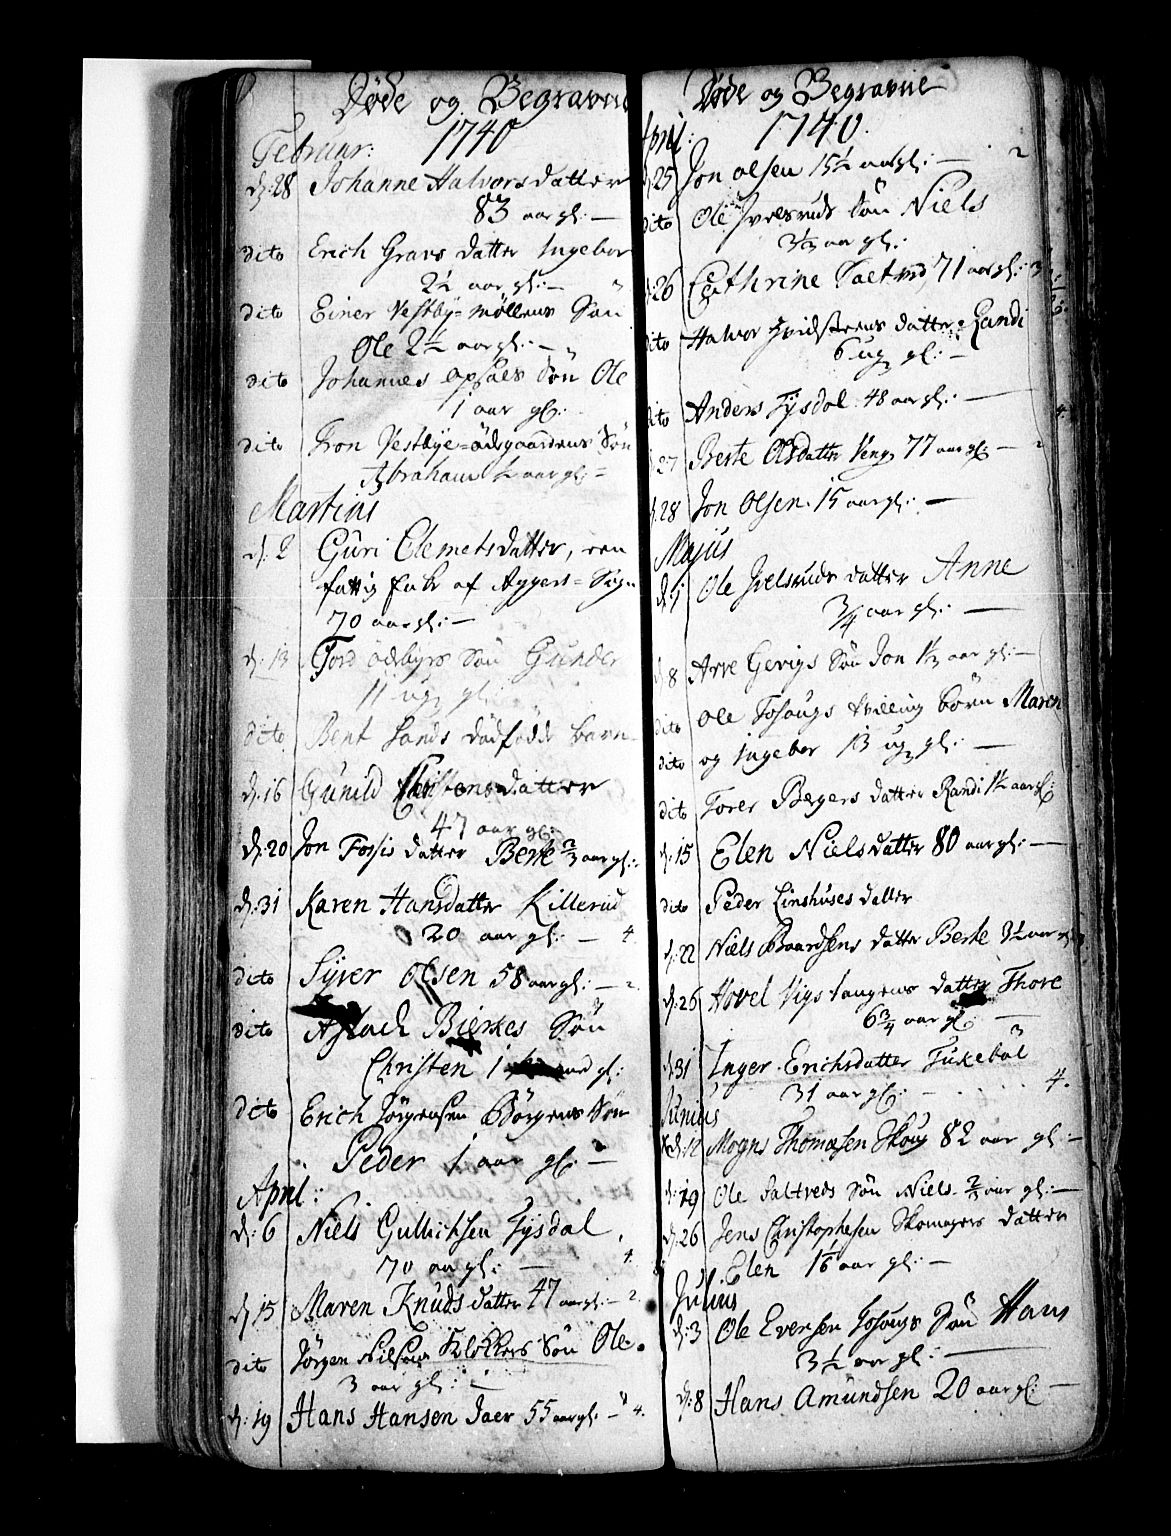 Døde og Begravne
1740
Februar:
d: 28 Johanne Halvorsdatter
83 aar gl: —
dito Erich Gravs datter Ingebor
2½ aar gl: —
dito Einer Vestbÿ=møllens Søn
Ole 2½ aar gl: —
dito Johannes Opsals Søn Ole
1 aar gl:
dito Tron Vestbye=ødegaardens Søn
Abraham ½ aar gl:
Martius
d: 2 Guri Clemetsdatter, een
fattig Enke af Aggers=Sogn
70 aar gl: —
d: 13 Tord Søn Gunder
11 ug gl:
dito Bent Sands dødfødde barn
d: 16 Gunild Christensdatter
47 aar gl:
d: 20 Jon Fossis datter Berte ⅔ aar gl:
d: 31 Karen Hansdatter Killerud
20 aar gl: — 4.
dito Syver Olsen 58 aar gl: — 2.
dito Aslach Bierkes Søn
Christen 1 aar gl:
dito Erich Jørgensen Børgens Søn
Peder 1 aar gl: —
April:
d: 6 Niels Gullichsen Fysdal
70 aar gl: — 4.
d: 15 Maren Knudsdatter 47 aar gl: — 2.
dito Jørgen Nilsens Klokkers Søn Ole
3 aar gl: —
d: 19 Hans Hansen Jaer 55 aar gl: — 4.
Døde og Begravne
1740.
April:
d: 25 Jon olsen 15½ aar gl: — 2
dito Ole Ivelsruds Søn Niels
3⅓ aar gl:
d: 26 Cathrine 71 aar gl: 3
dito Halvor Hvidsteens datter Randi
6 ug gl: —
dito Anders Fysdol 48 aar gl: — 4.
d: 27 Berte Olsdatter 77 aar gl: — 2
d: 28 Jon Olsen 15 aar gl: —
Majus
d: 1 Ole Ivelsruds datter Anne
¾ aar gl: —
d: 8 Arve Gevigs Søn Jon aar gl: —
dito Ole Fosaugs tvilling børn Maren
dito og Ingebor 13 ug gl: —
dito Torer Bergers datter Randi 1½ aar gl:
d: 15 Elen Nielsdatter 80 aar gl: —
dito Peder Linhuses datter
d: 22 Niels Baardsens datter Berte 3½ aar gl:
d: 26 Hovel Vigs tangens datter Thore
6¾ aar gl: —
d: 31 Inger Erichsdatter Fukebøl 3
31 aar gl: — 4.
Junius
d: 12 Mogns Thomasen Skoug 82 aar gl: —
d: 19 Ole Saltveds Søn Niels aar gl: —
d: 26 Jens Christophersen Skomagers datter
Elen aar gl: —
Julius
d: 3 Ole Evensen Fosougs Søn Hans
3½ aar gl: —
d: 8 Hans Amundsen 20 aar gl: —